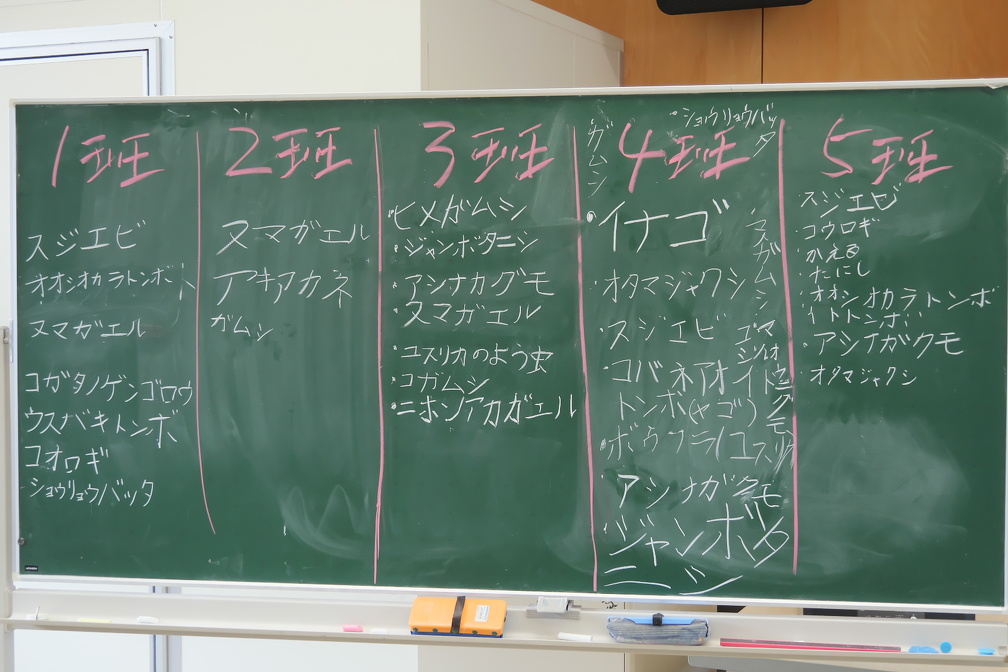 1班
スジエビ
オオシオカラトンボ
ヌマガエル
コガタノゲンゴロウ
ウスバキトンボ
コオロギ
ショウリョウバッタ
2班
ヌマガエル
アキアカネ
ガムシ
3班
・ヒメガムシ
・ジャンボタニシ
・アシナカグモ
・ヌマガエル
・ユスリカのよう虫
・コガムシ
・ニホンアカガエル
4班
・ショウリョウバッタ
ガムシ
・イナゴ
・オタマジャクシ
・スジエビ
・コバネアオイト
トンボ(ヤゴ)
・ボウフラ(ユスリカ
・アシナガグモ
・ジャンボタ
ニシ
マメガムシ
5班
スジエビ
・コウロギ
・かえる
・たにし
・オオシオカラトンボ
・イトトンボ
・アシナガクモ
・オタマジャクシ